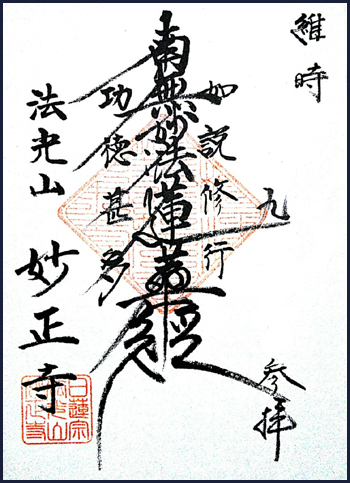 維時
九
参拝
如説修行
南無妙法蓮華経
功徳甚多
法光山 妙正寺
日蓮宗
法光山
妙正寺